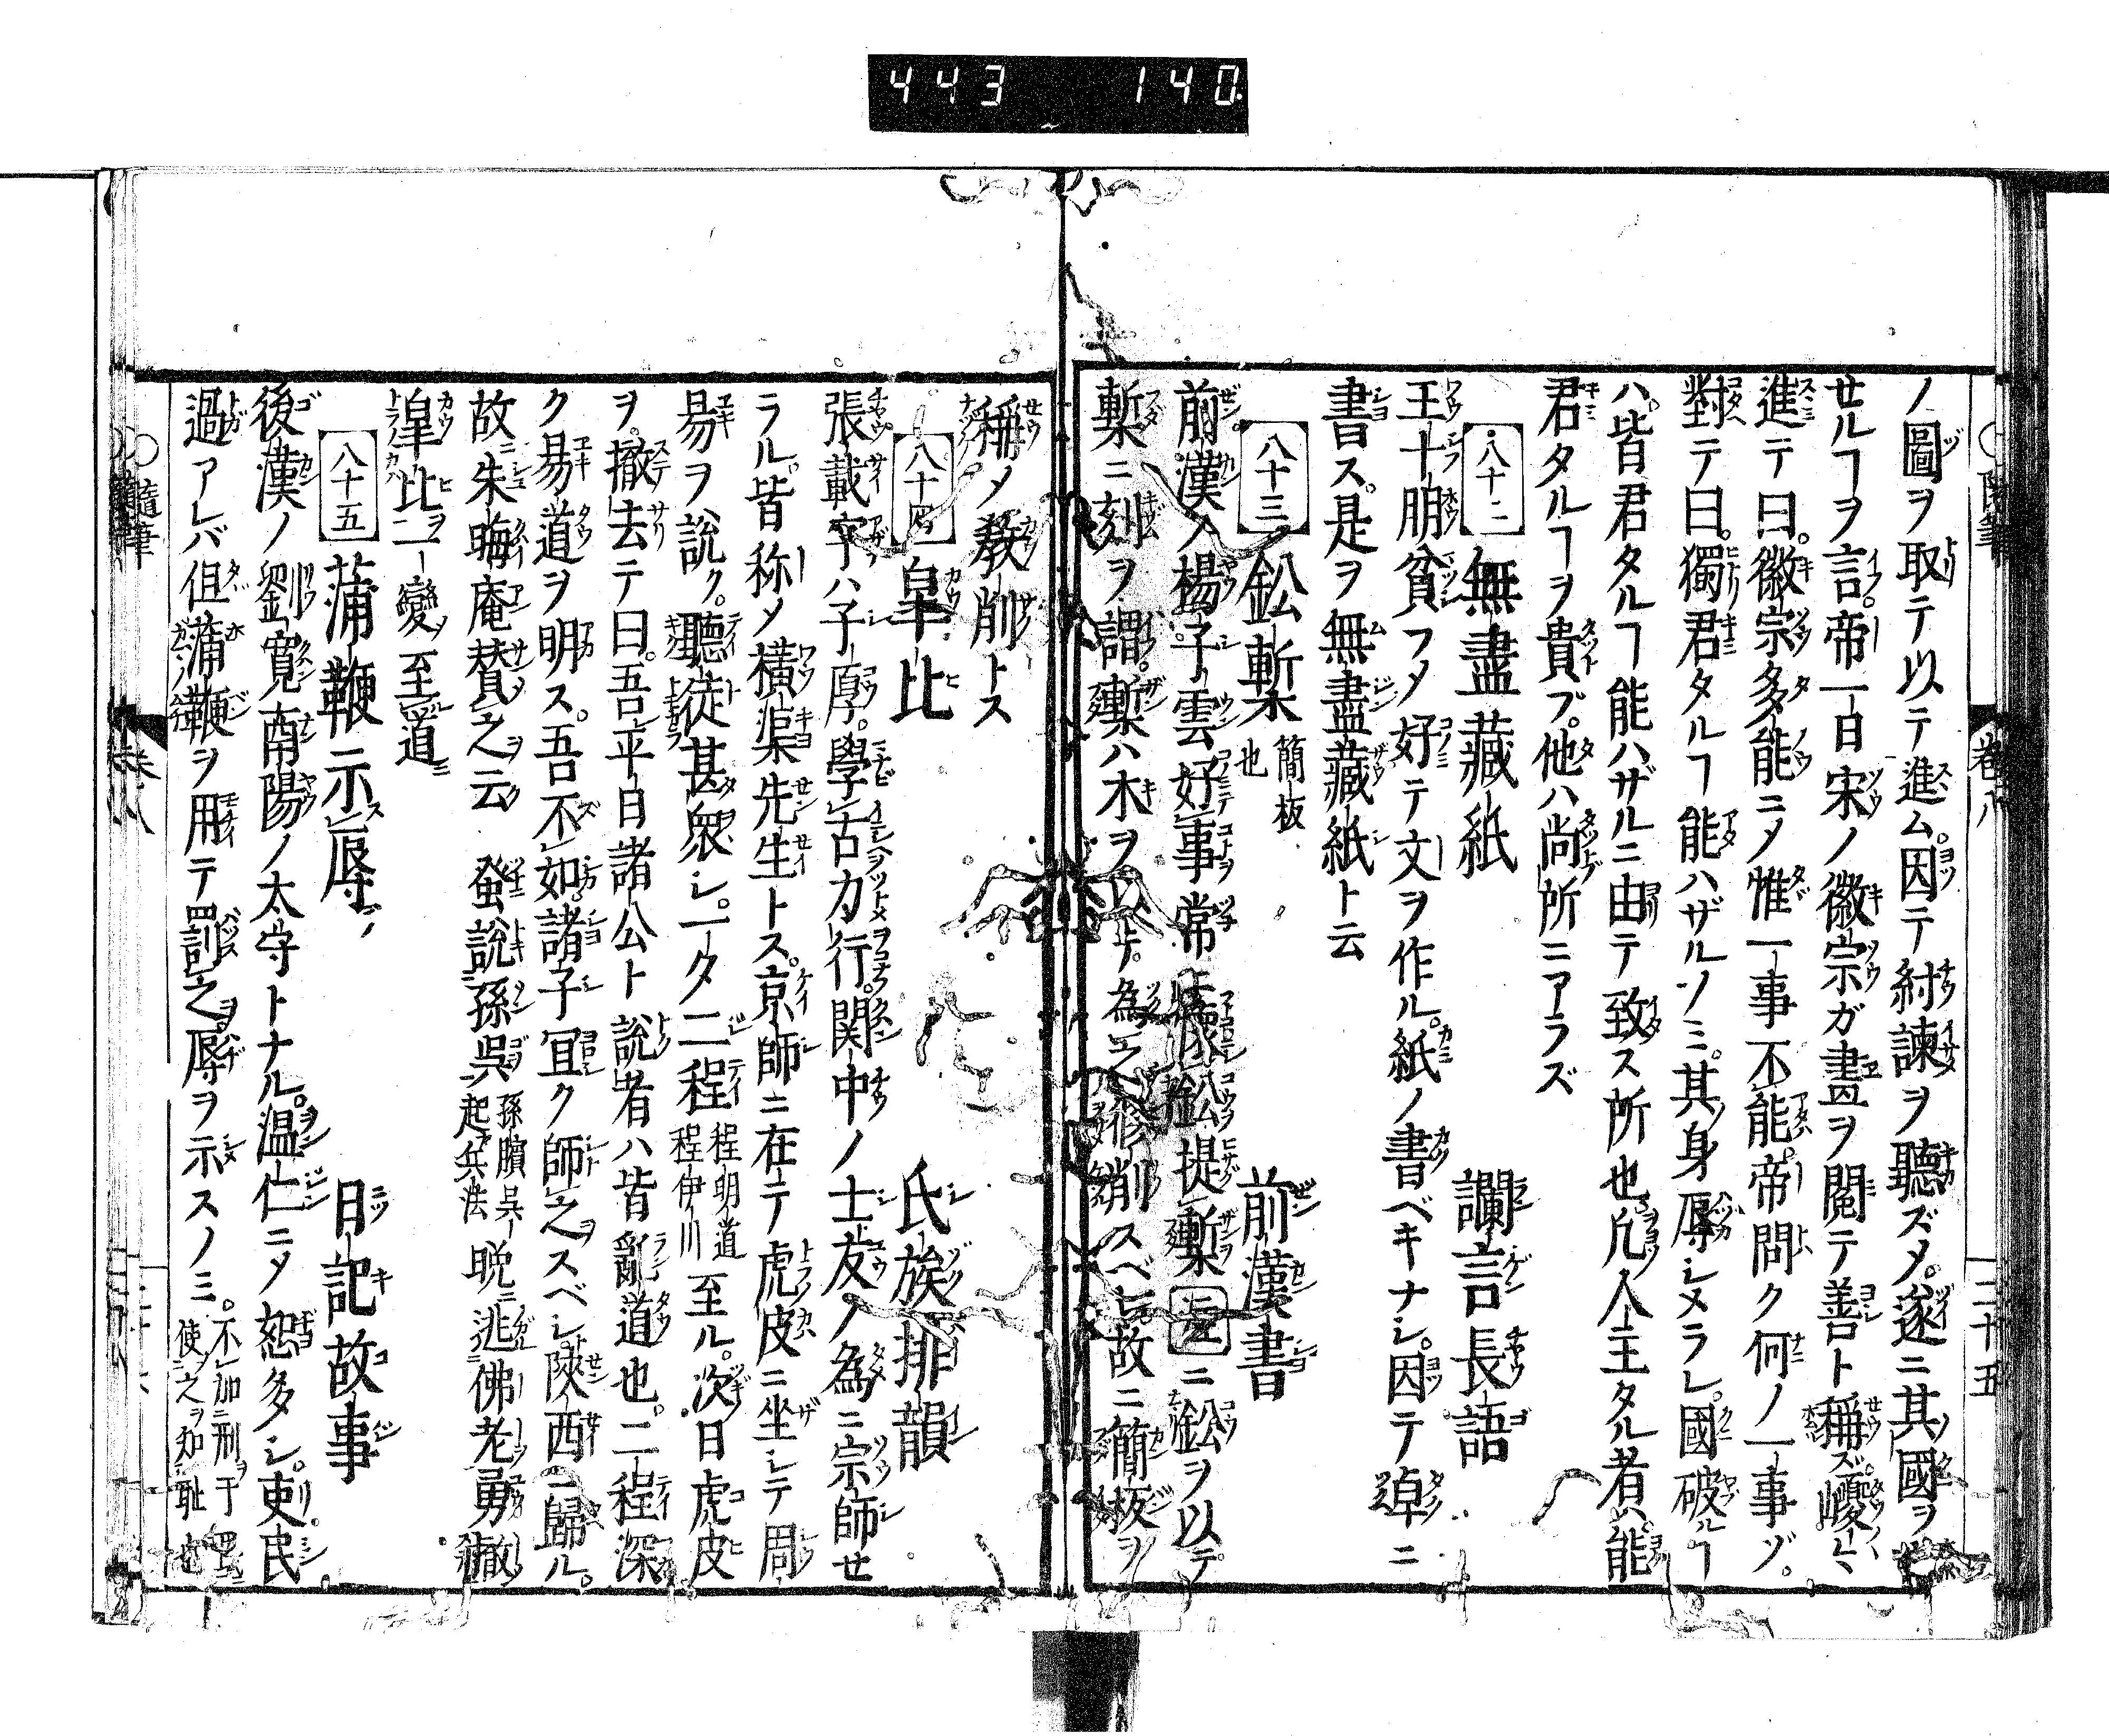 443 140
ノ圖ヲ取テ以テ進ム。因テ紂諫ヲ聽ズ〆。遂ニ其國ヲ
せルヿヲ言。帝一日宋ノ徽宗ガ畫ヲ閱テ善ト稱ズ。巙々
進テ曰。徽宗多能ニ〆惟一事不能。帝問ク何ノ一事ゾ。
對テ曰。獨君タルヿ能ハザルノミ。其身辱シメラレ。國破ルヿ
ハ。皆君タルヿ能ハザルニ由テ致ス所也。凡人主タル者ハ。能
君タルヿヲ貴ブ。他ハ尚所ニアラズ
八十二 無盡藏紙 讕言長語
王十朋貧フ〆好テ文ヲ作ル。紙ノ書ベキナシ。因テ逴ニ
書ス。是ヲ無盡藏紙ト云
八十三 鈆槧 簡板也 前漢書
前漢ノ楊子雲好事常 鈆提槧 ニ鈆ヲ以テ
槧ニ刻ヲ謂。槧ハ木ヲ以テ為之修削スベシ。故ニ簡板ヲ
稱〆敎削トス
八十四 皐比 氏族排韻
張載字ハ子厚。學古力行。関中ノ士友ノ為ニ宗師せ
ラル。皆称〆横渠先生トス。京師ニ在テ虎皮ニ坐シテ周
易ヲ說ク。聽徒甚衆シ。一夕二程 程明道程伊川 至ル。次日虎皮
ヲ撤去テ曰。吾平日諸公ト說者ハ皆亂道也。二程深
ク易道ヲ明ス。吾不如。諸子宜ク師之スベシ。陝西ニ歸ル。
故朱晦庵賛之云 蚤說孫吳 孫臏吳起兵法 晩逃佛老勇撤
皐比一變至道
八十五 蒲鞭示辱 日記故事
後漢ノ劉寛南陽ノ太守トナル。温仁ニ〆恕多シ。吏民
過アレバ但蒲鞭ヲ用テ罰之辱ヲ示スノミ。不加刑于 使之知耻也
隨筆 卷八 二十五
隨筆 卷八